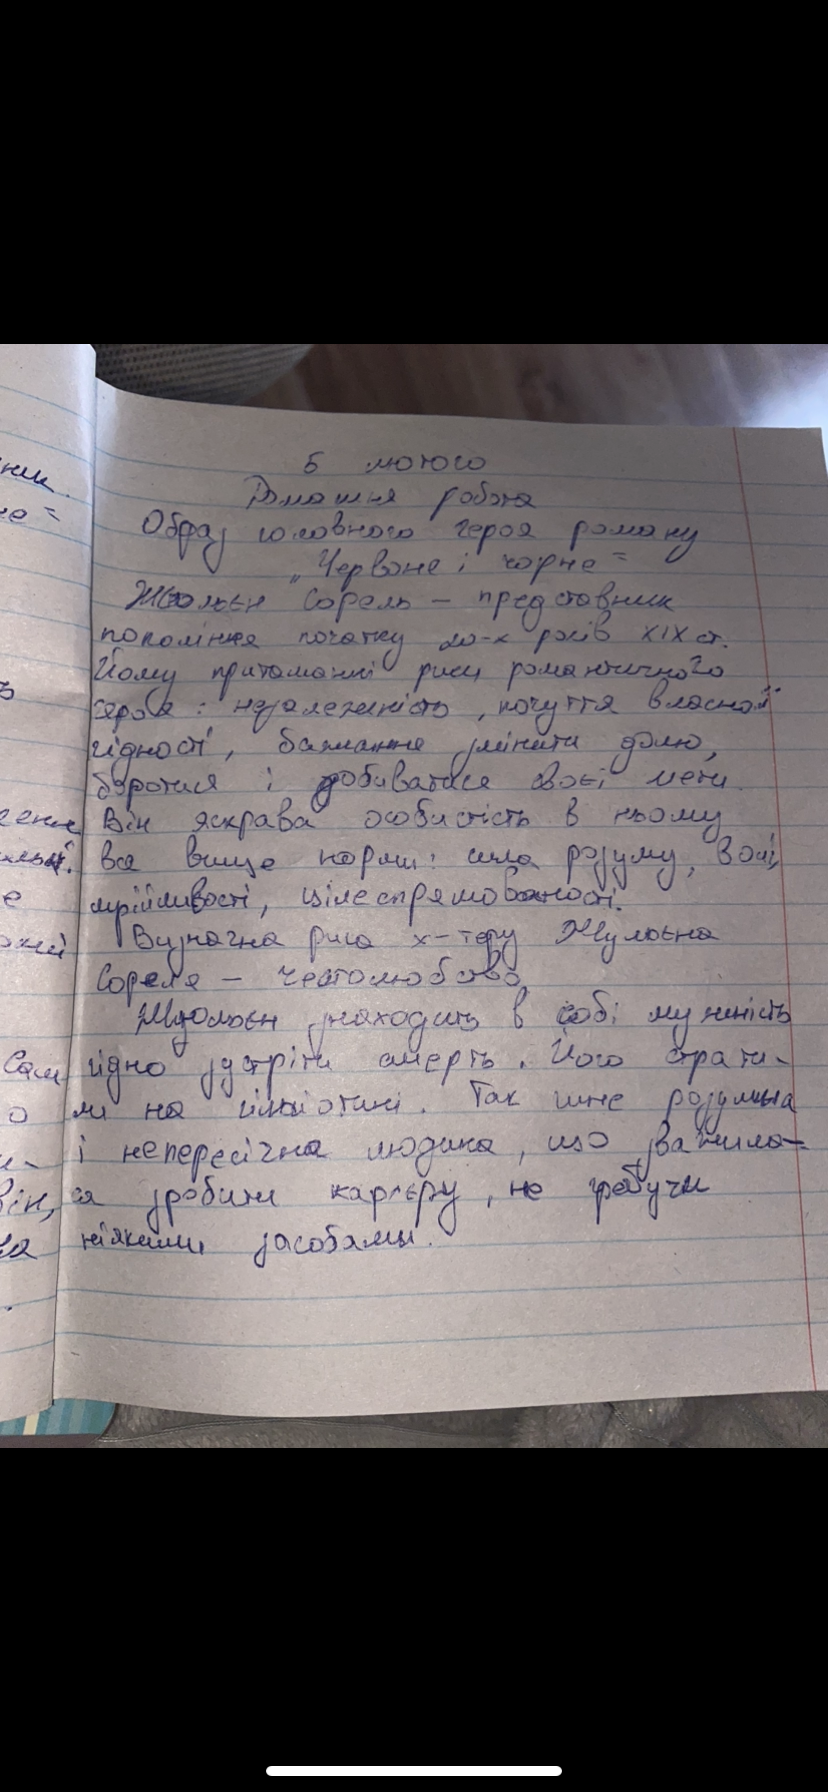 5 лютого
Домашня робота
Образ головного героя роману
„Червоне і чорне"
Жюльєн Сорель – представник
покоління початку 20-х років XIX ст.
Йому притаманні риси романтичного
героя: незалежність, почуття власної
гідності, бажання змінити долю,
боротися і добиватися своєї мети.
Він яскрава особистість в ньому
все вище норми: сила розуму, волі,
мрійливості, цілеспрямованості.
Визначна риса х-теру Жульєна
Сореля – честолюбство.
Жюльєн знаходить в собі мужність
гідно зустріти смерть. Його страти-
ли на гільйотині. Так гине розумна
і непересічна людина, що зважила-
ся зробити кар'єру, не гребуючи
ніякими засобами.